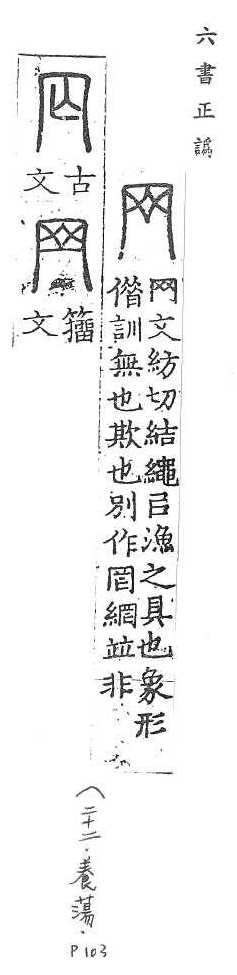 六書正譌
网
网文紡切結繩㠯漁之具也象形
僭訓無也欺也別作罔網竝非
古文
籀文
(二十二.養蕩.
P103